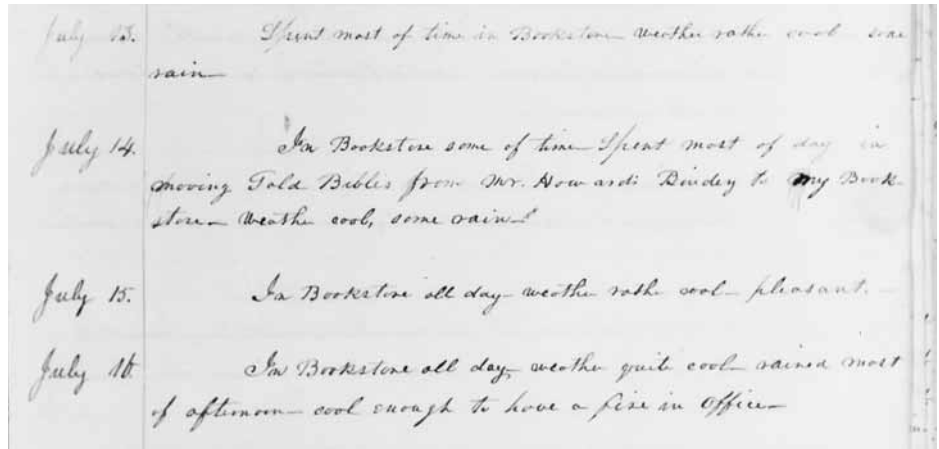 July 13. Spent most of time in Bookstore— weather rather cool— some
rain—
July 14. In Bookstore some of time— Spent most of day in
moving Told Bibles from Mr. Howards Bindey to my Book-
store— Weather cool, some rain—
July 15. In Bookstore all day— weather rather cool— pleasant.—
July 16. In Bookstore all day, weather quite cool— rained most
of afternoon— cool enough to have a fire in Office—